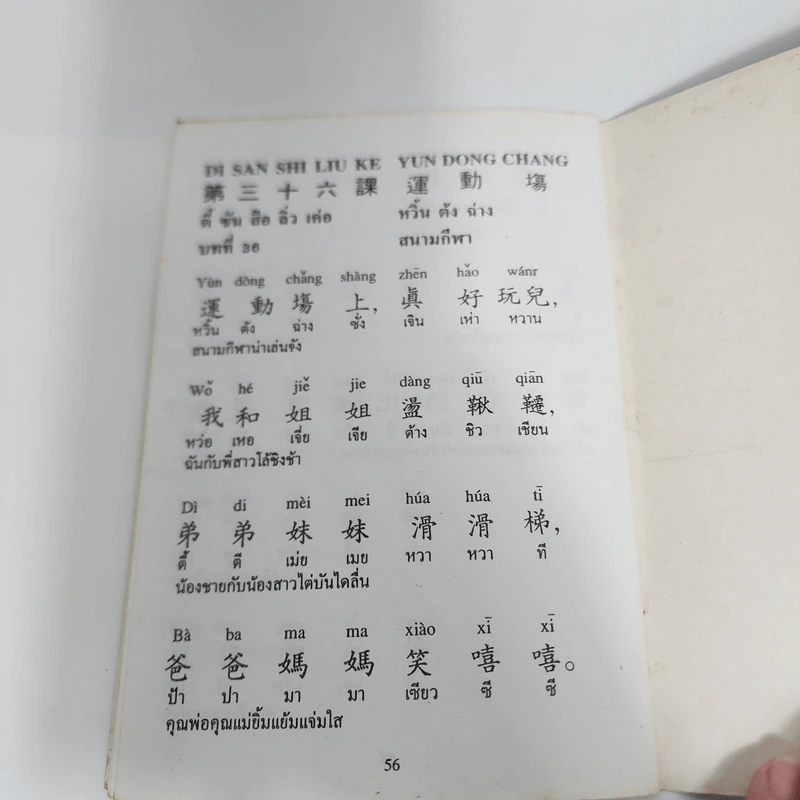 DI SAN SHI LIU KE YUN DONG CHANG
第三十六課 運動塲
ตี้ ซัน สือ ลิ่ว เค่อ หวิ้น ต้ง ฉ่าง
บทที่ 36 สนามกีฬา
Yùn dòng chǎng shàng zhēn hǎo wánr
運動塲上,眞好玩兒,
หวิ้น ต้ง ฉ่าง ซั่ง เจิน เห่า หวาน
สนามกีฬาน่าเล่นจัง
Wǒ hé jiě jie dàng qiū qiān
我和姐姐盪鞦韆,
หว่อ เหอ เจี่ย เจีย ต้าง ชิว เชียน
ฉันกับพี่สาวโล้ชิงช้า
Dì di mèi mei húa húa tī
弟弟妹妹滑滑梯,
ตี้ ตี เม่ย เมย หวา หวา ที
น้องชายกับน้องสาวไต่บันไดลื่น
Bà ba ma ma xiào xī xī
爸爸媽媽笑嘻嘻。
ป้า ปา มา มา เซียว ซี ซี
คุณพ่อคุณแม่ยิ้มแย้มแจ่มใส
56